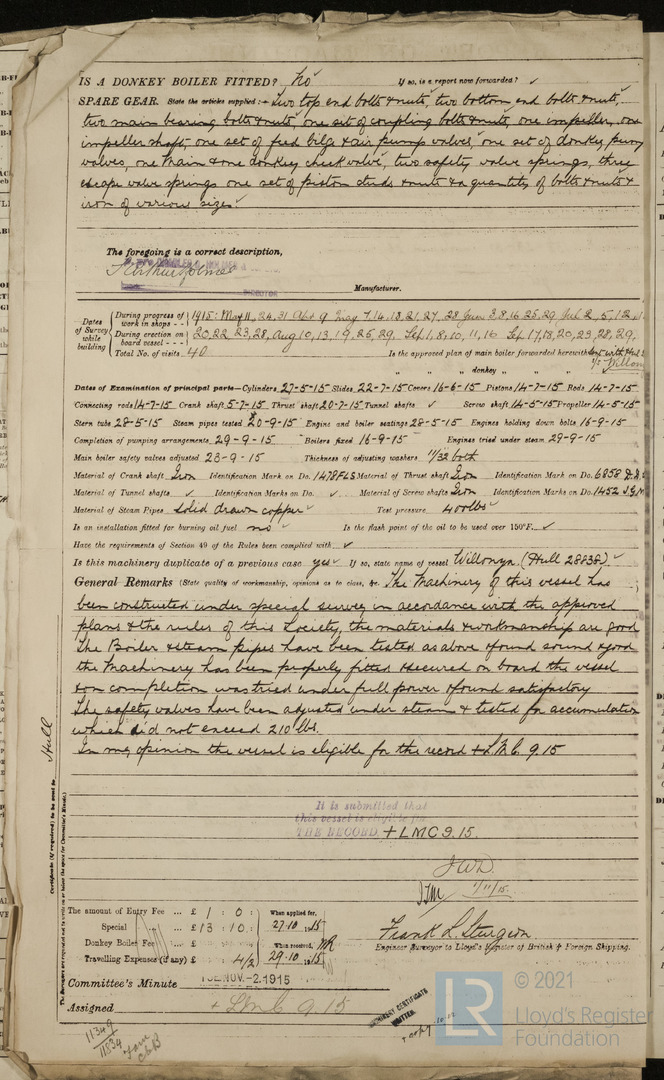 IS A DONKEY BOILER FITTED? no If so, is a report now forwarded? ✓
SPARE GEAR. State the articles supplied:— Two top end bolts & nuts, two bottom end bolts & nuts,
two main bearing bolts & nuts, one set of coupling bolts & nuts, one impeller, one
impeller shaft, one set of feed bilge & air pump valves, one set of donkey pump
valves, one main & one donkey check valve, two safety valve springs, three
escape valve springs one set of piston studs & nuts & a quantity of bolts & nuts &
iron of various sizes
The foregoing is a correct description,
DIRECTOR
Manufacturer.
Dates of Survey while building
During progress of work in shops - - 1915: May 11, 24, 31 7, 14, 18, 21, 27, 28 June 3, 8, 16, 25, 29, 2, 5, 12
During erection on board vessel - - - 20, 22, 23, 28, Aug 10, 13, 19, 25, 29, Sep 1, 8, 10, 11, 16 Sep 17, 18, 20, 23, 28, 29,
Total No. of visits 40 Is the approved plan of main boiler forwarded herewith
" " " donkey " " "
Dates of Examination of principal parts—Cylinders 27-5-15 Slides 22-7-15 Covers 16-6-15 Pistons 14-7-15 Rods 14-7-15
Connecting rods 14-7-15 Crank shaft 5-7-15 Thrust shaft 20-7-15 Tunnel shafts ✓ Screw shaft 14-5-15 Propeller 14-5-15
Stern tube 28-5-15 Steam pipes tested 20-9-15 Engine and boiler seatings 28-5-15 Engines holding down bolts 16-9-15
Completion of pumping arrangements 29-9-15 Boilers fixed 16-9-15 Engines tried under steam 29-9-15
Main boiler safety valves adjusted 23-9-15 Thickness of adjusting washers 11/32 both
Material of Crank shaft Iron Identification Mark on Do. 1478FLS Material of Thrust shaft Iron Identification Mark on Do. 6858
Material of Tunnel shafts ✓ Identification Marks on Do. ✓ Material of Screw shafts Iron Identification Marks on Do. 1452
Material of Steam Pipes solid drawn copper Test pressure 400 lbs
Is an installation fitted for burning oil fuel no Is the flash point of the oil to be used over 150°F. ✓
Have the requirements of Section 49 of the Rules been complied with ✓
Is this machinery duplicate of a previous case yes If so, state name of vessel Willonyx (Hull 28838)
General Remarks (State quality of workmanship, opinions as to class, &c. The Machinery of this vessel has
been constructed under special survey in accordance with the approved
plans & the rules of this Society, the materials & workmanship are good
The Boiler & steam pipes have been tested as above & found sound & good
the Machinery has been properly fitted & secured on board the vessel
& on completion was tried under full power & found satisfactory
The safety valves have been adjusted under steam & tested for accumulation
which did not exceed 210 lbs.
In my opinion the vessel is eligible for the record + LMC 9.15
Hull
It is submitted that
this vessel is eligible for
THE RECORD. + LMC 9.15.
JWD
1/11/15.
The amount of Entry Fee ... £ 1 : 0 : When applied for,
Special ... £ 13 : 10 : 27.10.1915
Donkey Boiler Fee ... £ : : When received,
Travelling Expenses (if any) £ : 4/2 29.10.1915
Frank L. Sturgeon
Engineer Surveyor to Lloyd's Register of British & Foreign Shipping.
Committee's Minute TUE. NOV. -2. 1915
Assigned + LMC 9.15
MACHINERY CERTIFICATE
WRITTEN
11349
11834
LR
© 2021
Lloyd's Register
Foundation